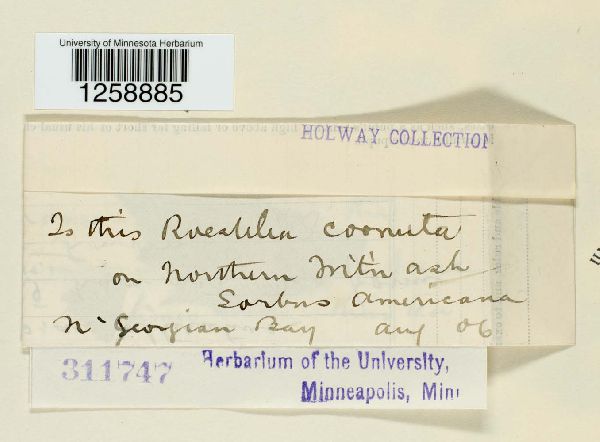 University of Minnesota Herbarium
1258885
high above or falling far short of his usual
HOLWAY COLLECTION
Is this Roestelia cornuta
on Northern Mt'n ash
Sorbus Americana
N. Georgian Bay Aug 06
311747
Herbarium of the University,
Minneapolis, Minn